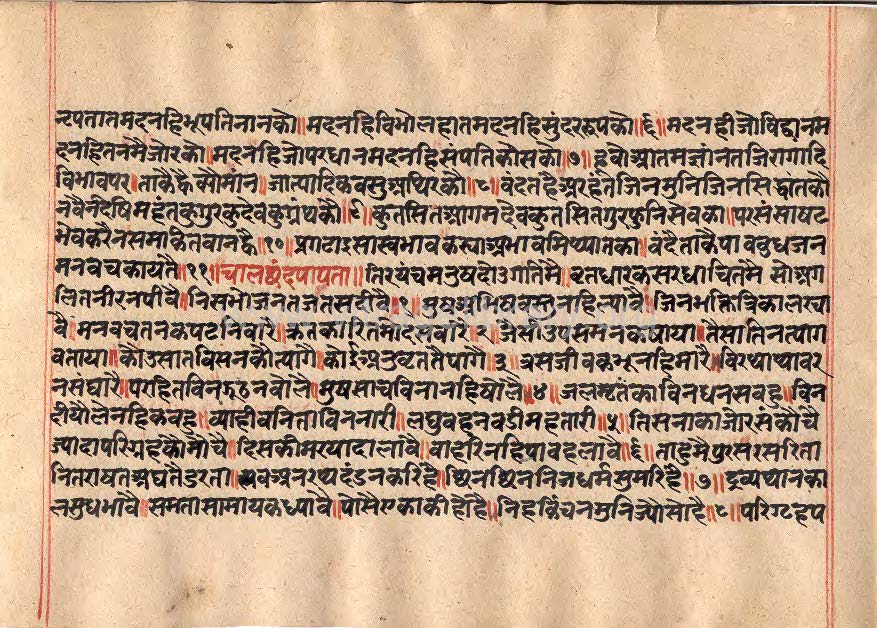 नृपतातमदनहिभूपतिनानको॥मदनहिविभोलहातमदनहिसुंदररूपको॥६॥मदनहीजोविद्वानम
दनहितनमैजोरको॥मदनहिजोपरधानमदनहिसंपतिकोसको॥७॥इवोआतमज्ञांनतजिरागादि
विभावपर॥ताकैहैवौमांन॥जात्यादिकवसुअथिरकौ॥८॥वंदतहैअरहंतजिनमुनिजिनसिद्धांतकौ
नवैनदेषिमहंतकुगुरकुदेवकुग्रंथकौ॥९॥कुतसितआगमदेवकुतसितगुरफुनिसेवका॥परसंसाषट
भेवकरैनसमकितवानहै॥१०॥प्रगटाऽसास्वभावकस्वाअभावमिथ्यातका॥वंदैताकैपावबुधजन
मनवचकायतै॥११॥चालछंदपापता॥तिरयंचमनुषदोउगतिमै॥वृतधारकसरधाचितमै सोअग
लितनीरनपीवै॥निसभोजनतजतसदीवै॥१॥मुषअभिषवस्तनहिल्यावै॥जिनभक्तित्रिकालरचा
वै॥मनवचतनकपटनिवारै॥कृतकारितमोदसवारै॥२॥जैसीउपसमनकषाया॥तैसातिनत्याग
वताया॥कोउसातविसनकौत्यागै॥कोईअनुव्रततपपागै॥३॥त्रसजीवकभूनहिमारै॥विरथाथावर
नसंघारै॥परहितविनझूठनवोलै॥मुषसाचविनानहिषोलै॥४॥जलमृतंकाविनधनसवहू॥विन
दीयौलेनहिकवहू॥व्याहीवनिताविननारी॥लघुवहनवडीमहतारी॥५॥तिसनाकाजोरसंकौचै
ज्यादापरिग्रहकौमोचै॥दिसकीमरयादालावै॥वाहरिनहिपावहलावै॥६॥ताहूमैपुरसरसरिता
नितराषतअघतैडरता॥सवअनरथदंडनकरिहै॥छिनछिननिजधर्मसुमरिहै॥७॥द्रव्यथानका
लसुधभावै॥समतासामायकध्यावै॥पोसैएकाकीहोहै॥निहकिंचनमुनिज्यौसोहै॥८॥परिग्रहप